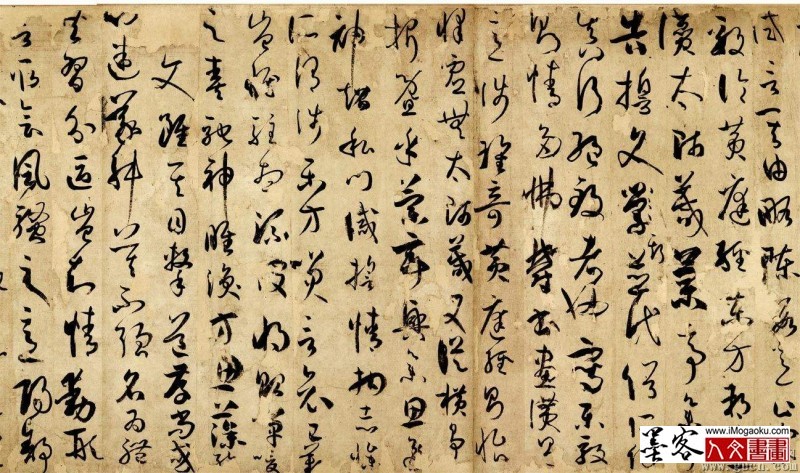 試言其由略陳數意止如
毅論黃庭經東方朔畫
讚太師箴蘭亭集
告誓文斯並代俗所傳
真行絕致者也寫樂毅
則情多怫鬱書畫讚則
意涉瓌奇黃庭經則怡
懌虛無太師箴又從橫爭
折暨乎蘭亭興集思逸
神超私門誡誓情拘志慘
所謂涉樂方笑言哀已歎
豈惟駐想流波將貽嘽噯
之奏馳神睢渙方思藻繪
文雖其目擊道存尚或
心迷義舛莫不強名為體
共習分區豈知情動形
言取會風騷之意陽舒
www.iMogaoku.com
墨客
人文書畫